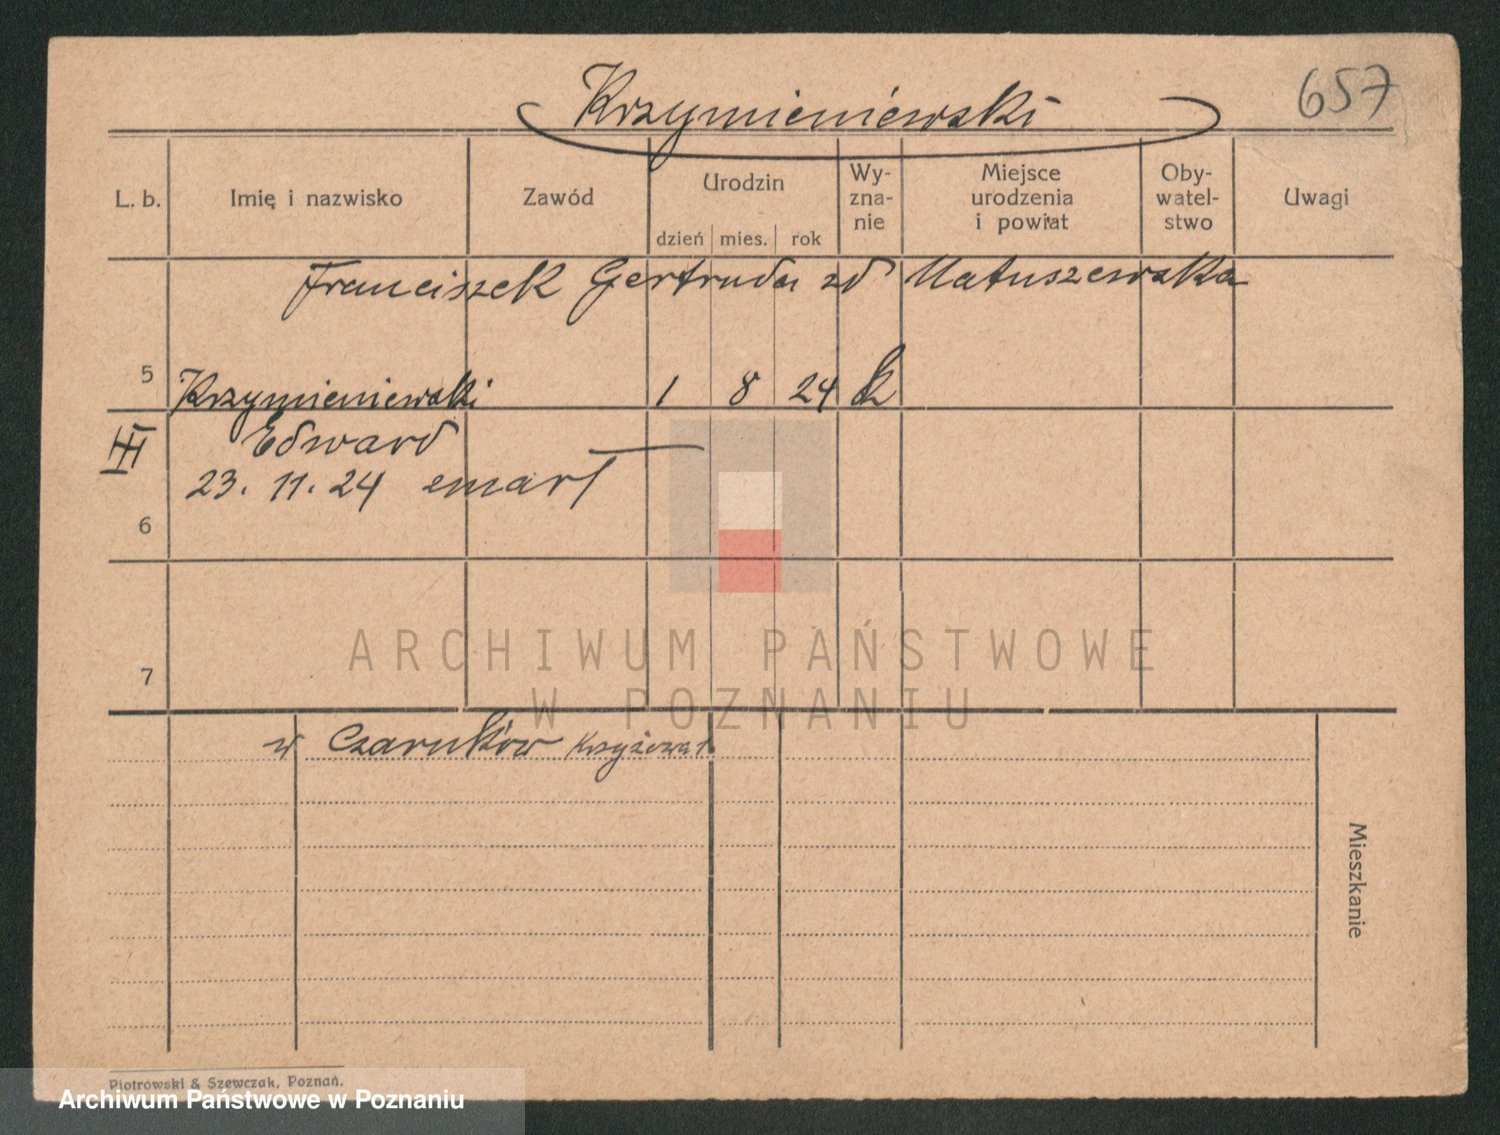 Krzymieniewski
657
L. b.
Imię i nazwisko
Zawód
Urodzin
dzień mies. rok
Wy-
zna-
nie
Miejsce
urodzenia
i powiat
Oby-
watel-
stwo
Uwagi
Franciszek Gertruda zd Matuszewska
5 Krzymieniewski 1 8 24 k
III Edward
23. 11. 24 emarł
6
7
ARCHIWUM PAŃSTWOWE
W POZNANIU
w Czarnków
Mieszkanie
Piotrowski & Szewczak, Poznań.
Archiwum Państwowe w Poznaniu